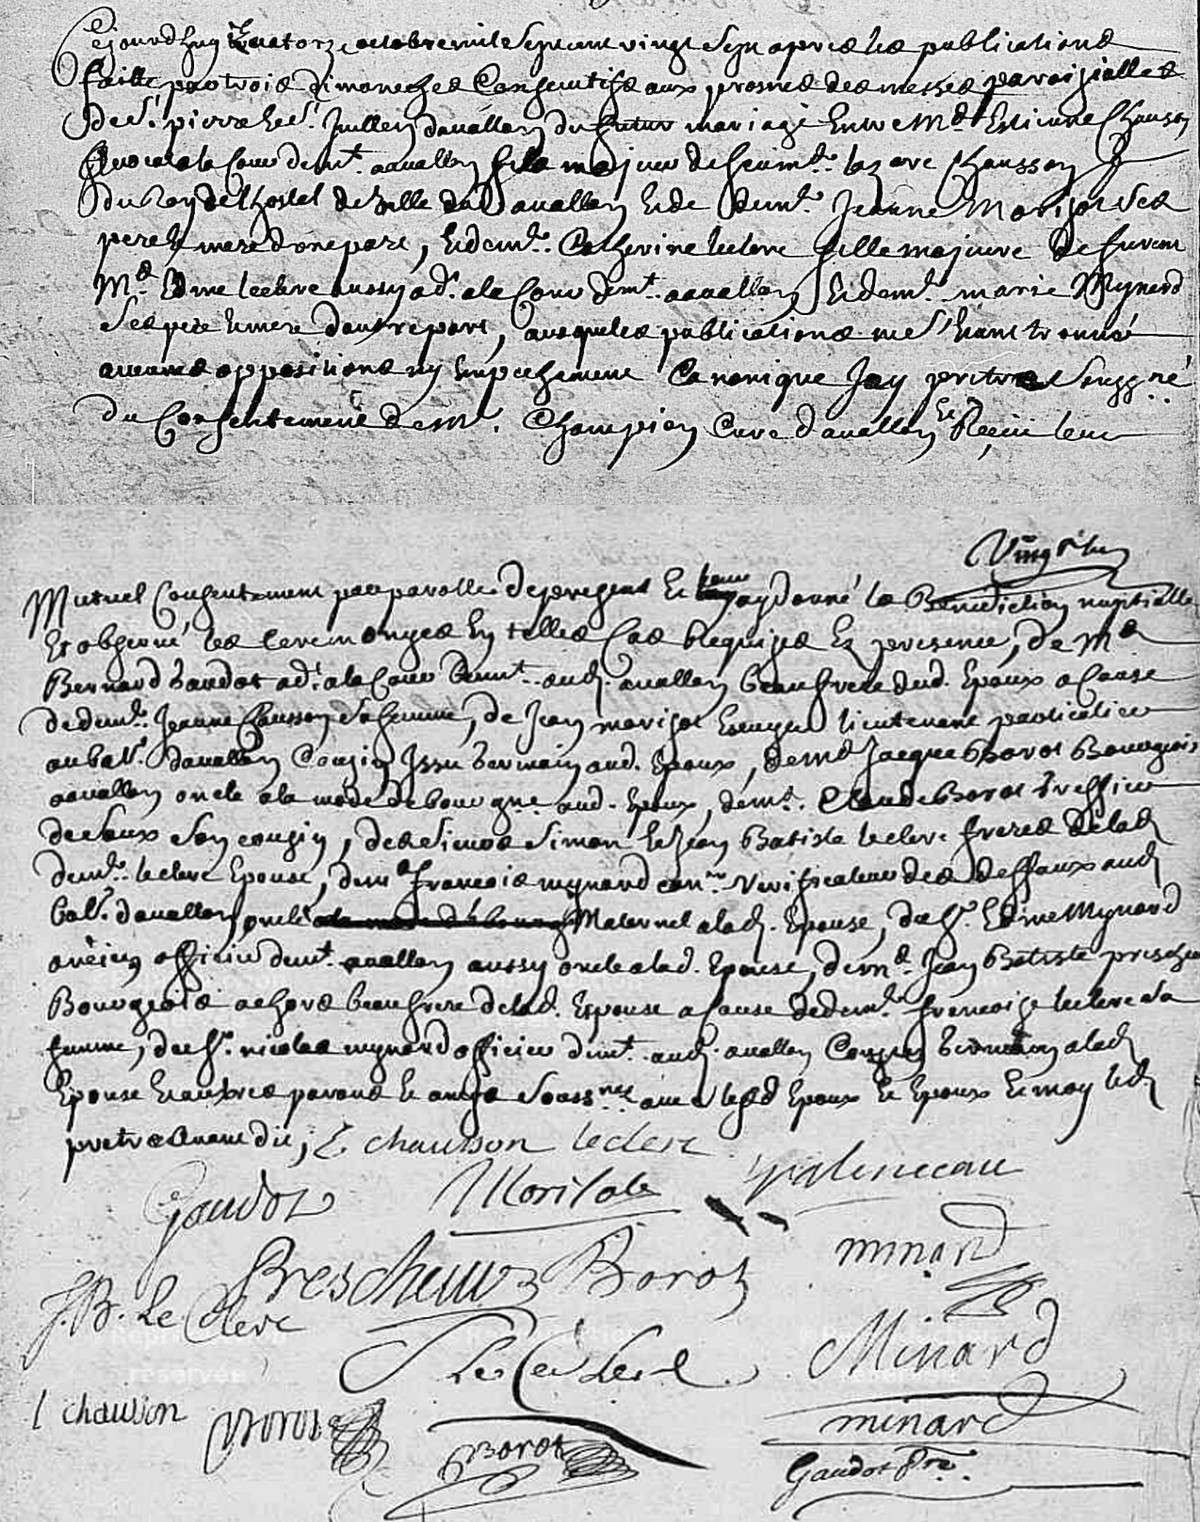 Cejourdhuy quatorze octobre mil sept cent vingt sept apres les publications
faitte par trois dimanches Consecutifs aux prosnes des messes paroissialles
de St. pierre et St. Jullien davallon du futur mariage Entre Me Estienne Chausson
Avocat a la Cour demt. aavallon fils majeur de feu me. lazare Chausson
du Roy de lhostel de ville dud avallon et de demlle. Jeanne Morisot ses
pere et mere dune part, et demlle. Catherine leclerc fille majeure de furent
Me. Edme leclerc aussy adt. a la Cour demt. aavallon et demlle. marie Mynard
ses pere et mere dautre part, auxquelles publications ne sestant trouvé
aucunes oppositions ny Empechement Canonique Jay pretre soussigné
du Consentement de Mr. Champion Curé davallon et Reçu leur
Vingt sept
Mutuel Consentement par parolle de present et leur ay donné la Benediction nuptialle
et observé les ceremonyes En telles Cas Requises En presence, de Me
Bernard Gaudot adt. a la Cour demt. aud. avallon beaufrere dud. Epoux a Cause
de demlle. Jeanne Chausson sa femme, de Jean morisot Escuyer lieutenant particulier
au bal. davallon Cousin Issu Germain aud. Epoux, de Me Jacque Borot Bourgeois
aavallon oncle a la mode de bourgne. aud. Epoux, de mr. Claude Borot Greffier
de son cousin, des sieurs Simon et Jean Batiste leclerc freres de lad
demlle. leclerc Epouse, de me francois mynard verificateur des deffaux aud
bal. davallon, oncle Maternel a lad. Epouse, du Sr. Edme Mynard
ancien officier demt. aavallon aussy oncle a lad. Epouse, de me. Jean Batiste
Bourgeois beaufrere de lad. Espouse a Cause de demlle. francoise leclerc sa
femme, du Sr. nicolas mynard officier demt. aud. avallon Cousin Germain a lad
Epouse et autres parans et amys soussnés avec lesd Epoux et Epoux et moy led
pretre , E chausson leclerc
Gaudot Morisot
minard
J. B. Le Clerc Borot
S Le Clerc Minard
chausson Borot Borot minard
Gaudot Ptre.